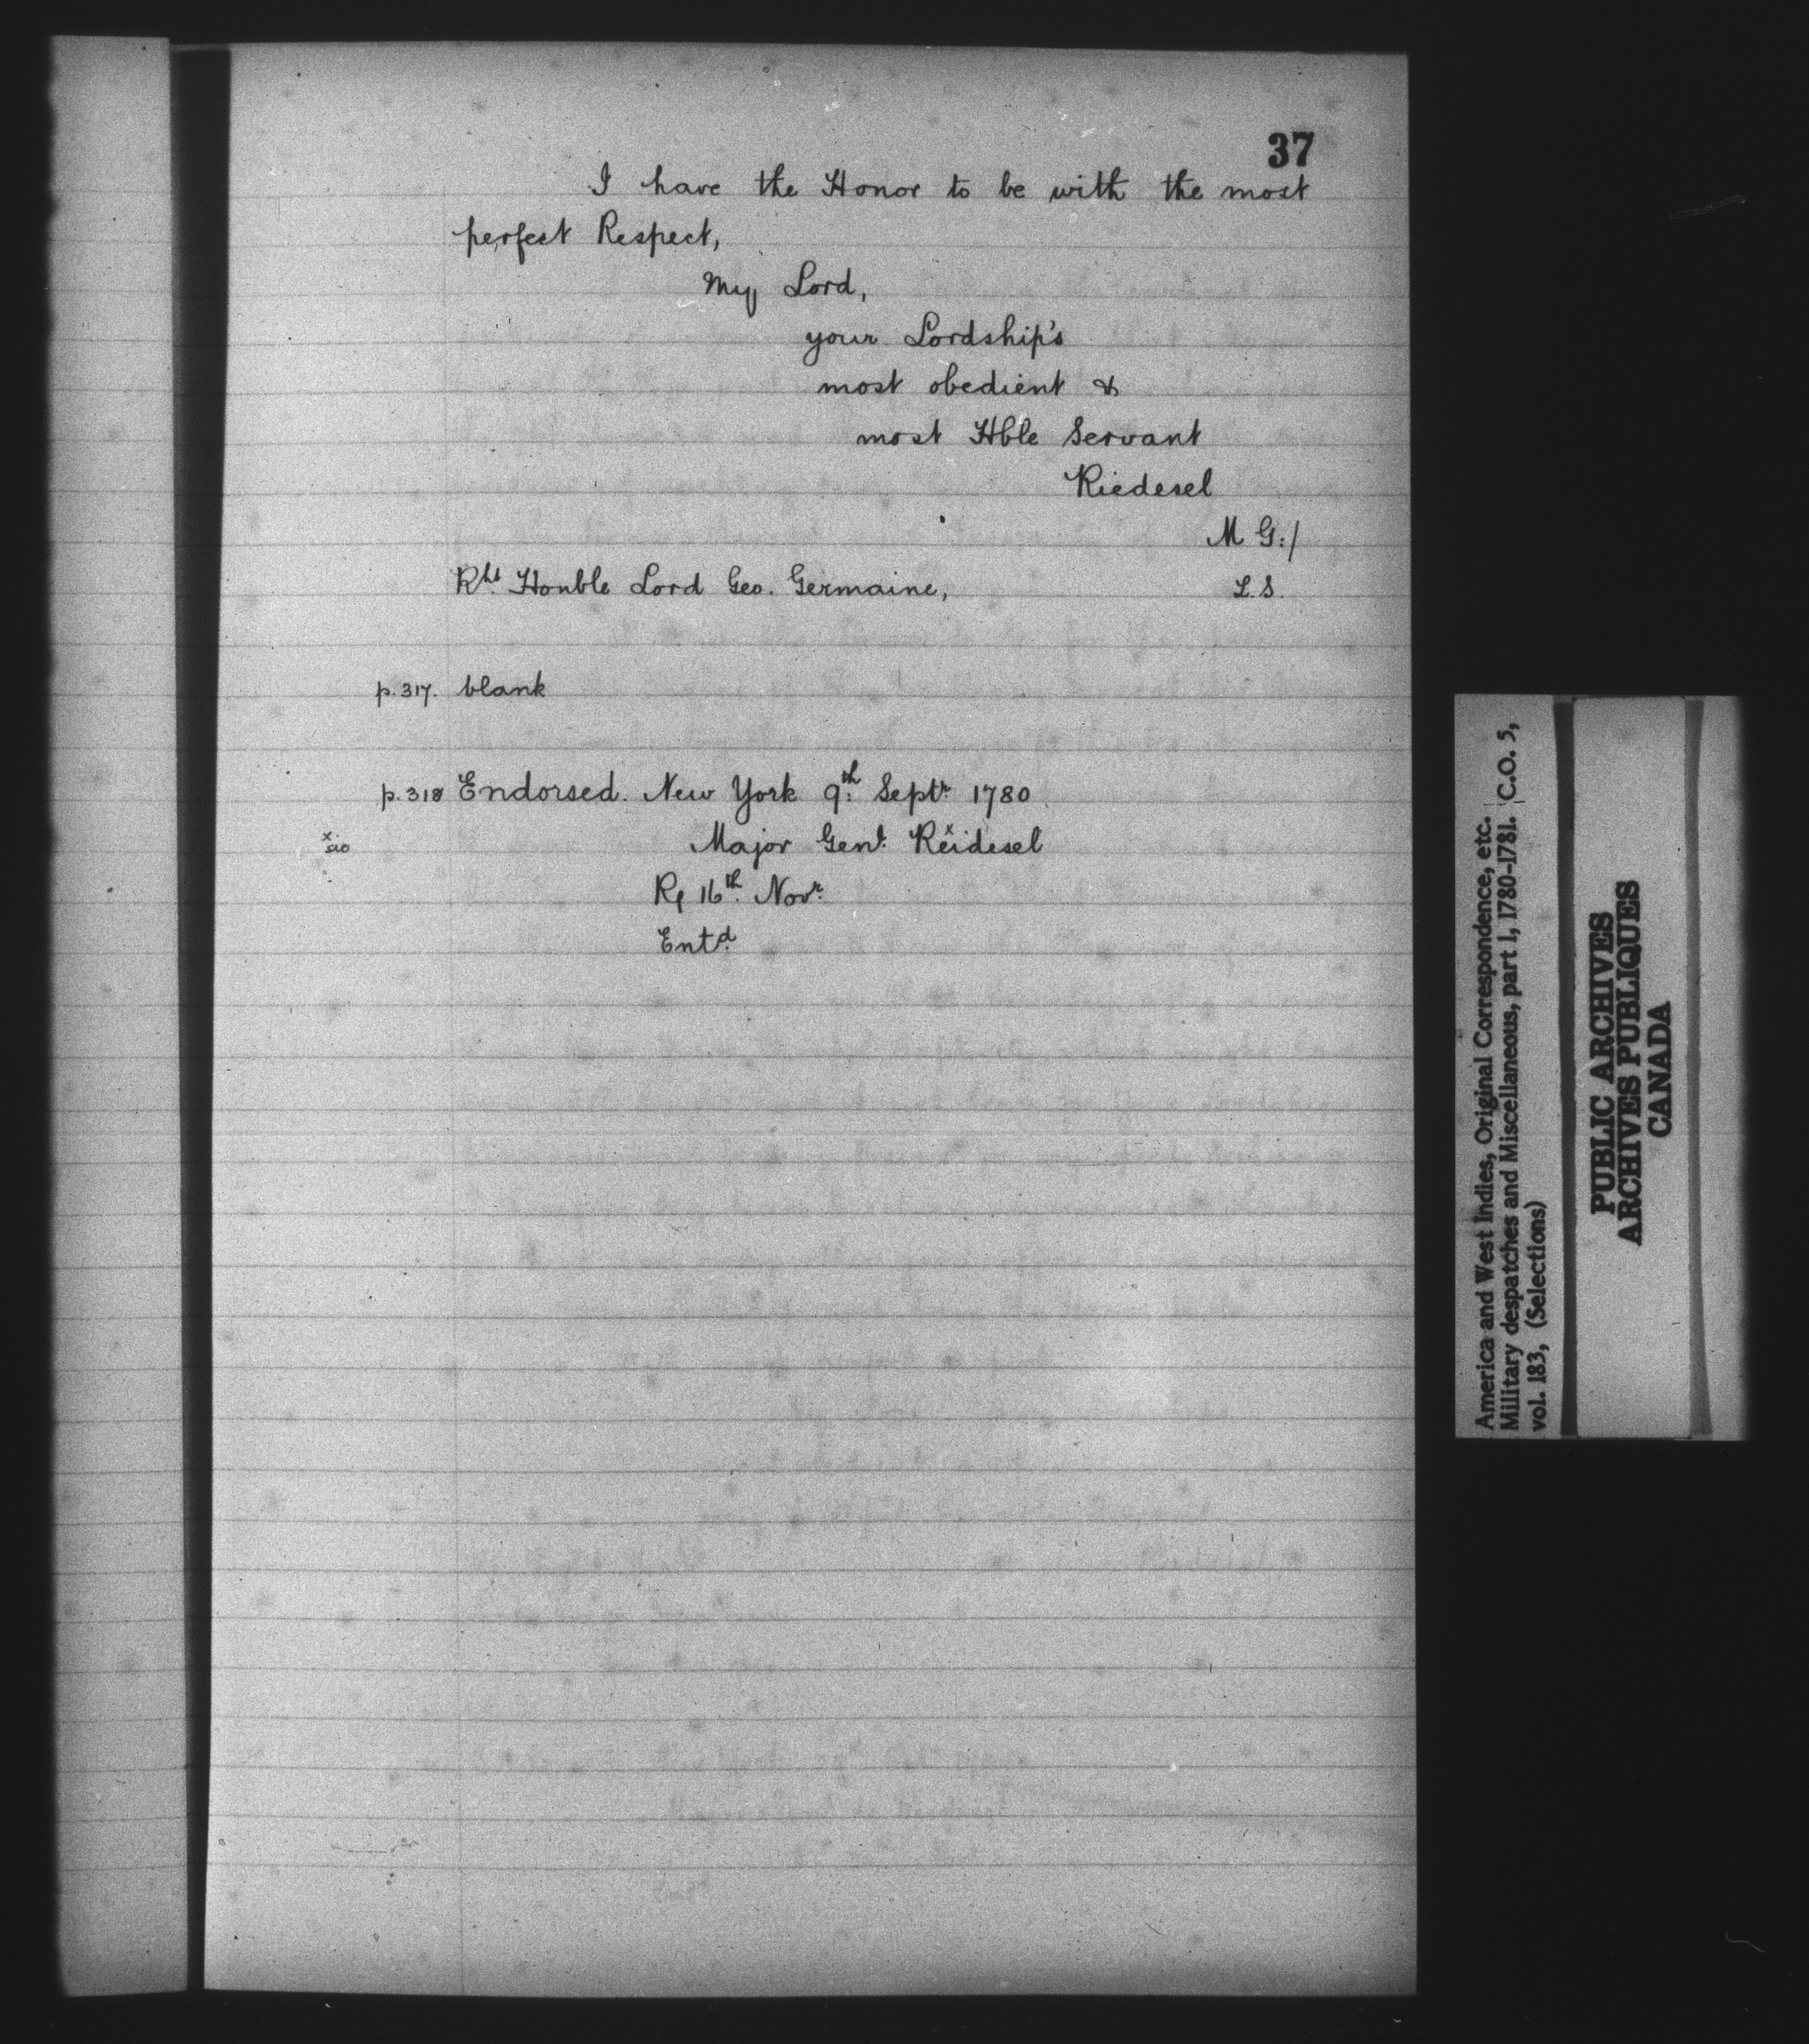 37
I have the Honor to be with the most
perfect Respect,
My Lord,
your Lordship's
most obedient &
most Hble Servant
Riedesel
M G:/
Rht. Honble Lord Geo. Germaine,
L.S.
p.317. blank
p.318 Endorsed. New York 9th. Septr. 1780
x sic
Major Genl. Reixdesel
R 16th. Novr.
Entd.
America and West Indies, Original Correspondence, etc.
Military despatches and Miscellaneous, part 1, 1780-1781. C.O. 5,
vol. 183, (Selections)
PUBLIC ARCHIVES
ARCHIVES PUBLIQUES
CANADA